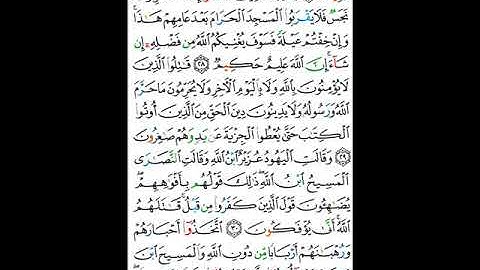 نَجَسٌ فَلَا يَقْرَبُوا۟ ٱلْمَسْجِدَ ٱلْحَرَامَ بَعْدَ عَامِهِمْ هَٰذَا ۚ
وَإِنْ خِفْتُمْ عَيْلَةً فَسَوْفَ يُغْنِيكُمُ ٱللَّهُ مِن فَضْلِهِۦٓ إِن
شَآءَ ۚ إِنَّ ٱللَّهَ عَلِيمٌ حَكِيمٌ ٢٨ قَٰتِلُوا۟ ٱلَّذِينَ
لَا يُؤْمِنُونَ بِٱللَّهِ وَلَا بِٱلْيَوْمِ ٱلْءَاخِرِ وَلَا يُحَرِّمُونَ مَا حَرَّمَ
ٱللَّهُ وَرَسُولُهُۥ وَلَا يَدِينُونَ دِينَ ٱلْحَقِّ مِنَ ٱلَّذِينَ أُوتُوا۟
ٱلْكِتَٰبَ حَتَّىٰ يُعْطُوا۟ ٱلْجِزْيَةَ عَن يَدٍ وَهُمْ صَٰغِرُونَ
٢٩ وَقَالَتِ ٱلْيَهُودُ عُزَيْرٌ ٱبْنُ ٱللَّهِ وَقَالَتِ ٱلنَّصَٰرَى
ٱلْمَسِيحُ ٱبْنُ ٱللَّهِ ۖ ذَٰلِكَ قَوْلُهُم بِأَفْوَٰهِهِمْ ۖ
يُضَٰهِـُٔونَ قَوْلَ ٱلَّذِينَ كَفَرُوا۟ مِن قَبْلُ ۚ قَٰتَلَهُمُ
ٱللَّهُ ۚ أَنَّىٰ يُؤْفَكُونَ ٣٠ ٱتَّخَذُوٓا۟ أَحْبَارَهُمْ
وَرُهْبَٰنَهُمْ أَرْبَابًا مِّن دُونِ ٱللَّهِ وَٱلْمَسِيحَ ٱبْنَ